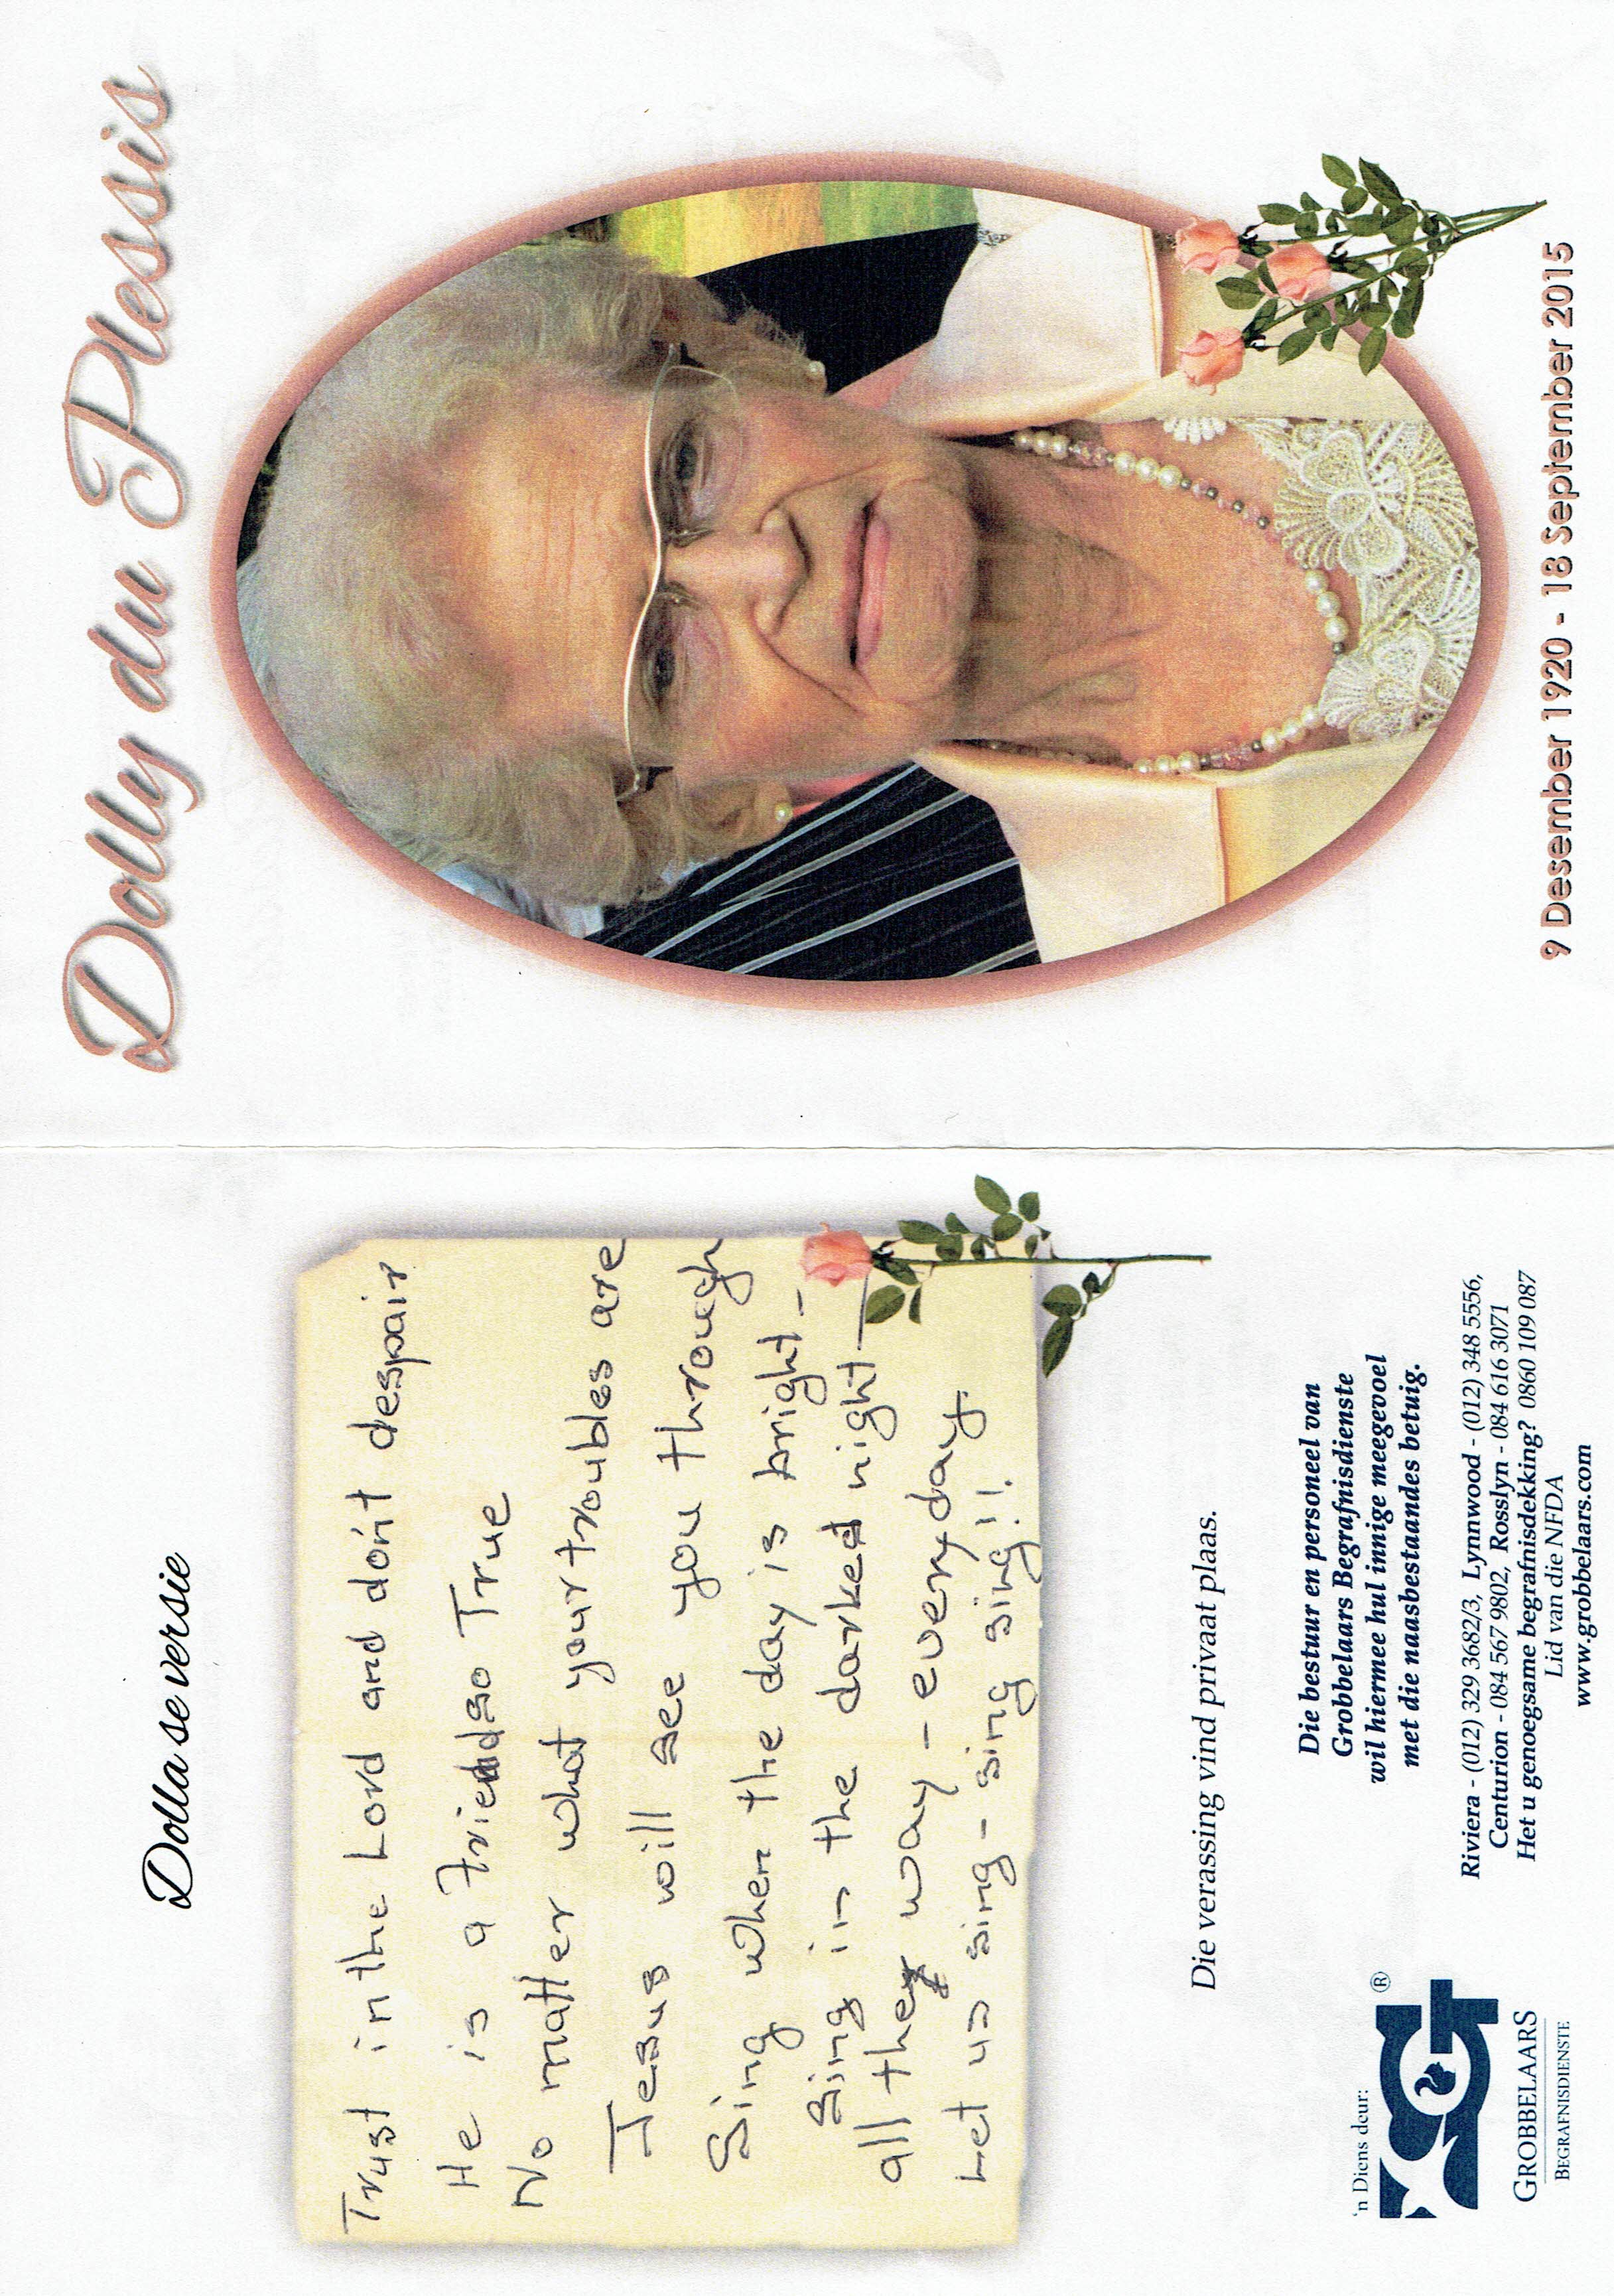 Dolla se versie
Trust in the Lord and don't despair
He is a friend so True
No matter what your troubles are
Jesus will see you through
Sing when the day is bright -
Sing in the darked night —
all they way - everyday.
Let us sing - sing sing sing!!
Die verassing vind privaat plaas.
'n Diens deur:
®
GROBBELAARS
BEGRAFNISDIENSTE
Die bestuur en personeel van
Grobbelaars Begrafnisdienste
wil hiermee hul innige meegevoel
met die naasbestaandes betuig.
Riviera - (012) 329 3682/3, Lynnwood - (012) 348 5556,
Centurion - 084 567 9802, Rosslyn - 084 616 3071
Het u genoegsame begrafnisdekking? 0860 109 087
Lid van die NFDA
www.grobbelaars.com
Dolly du Plessis
9 Desember 1920 - 18 September 2015